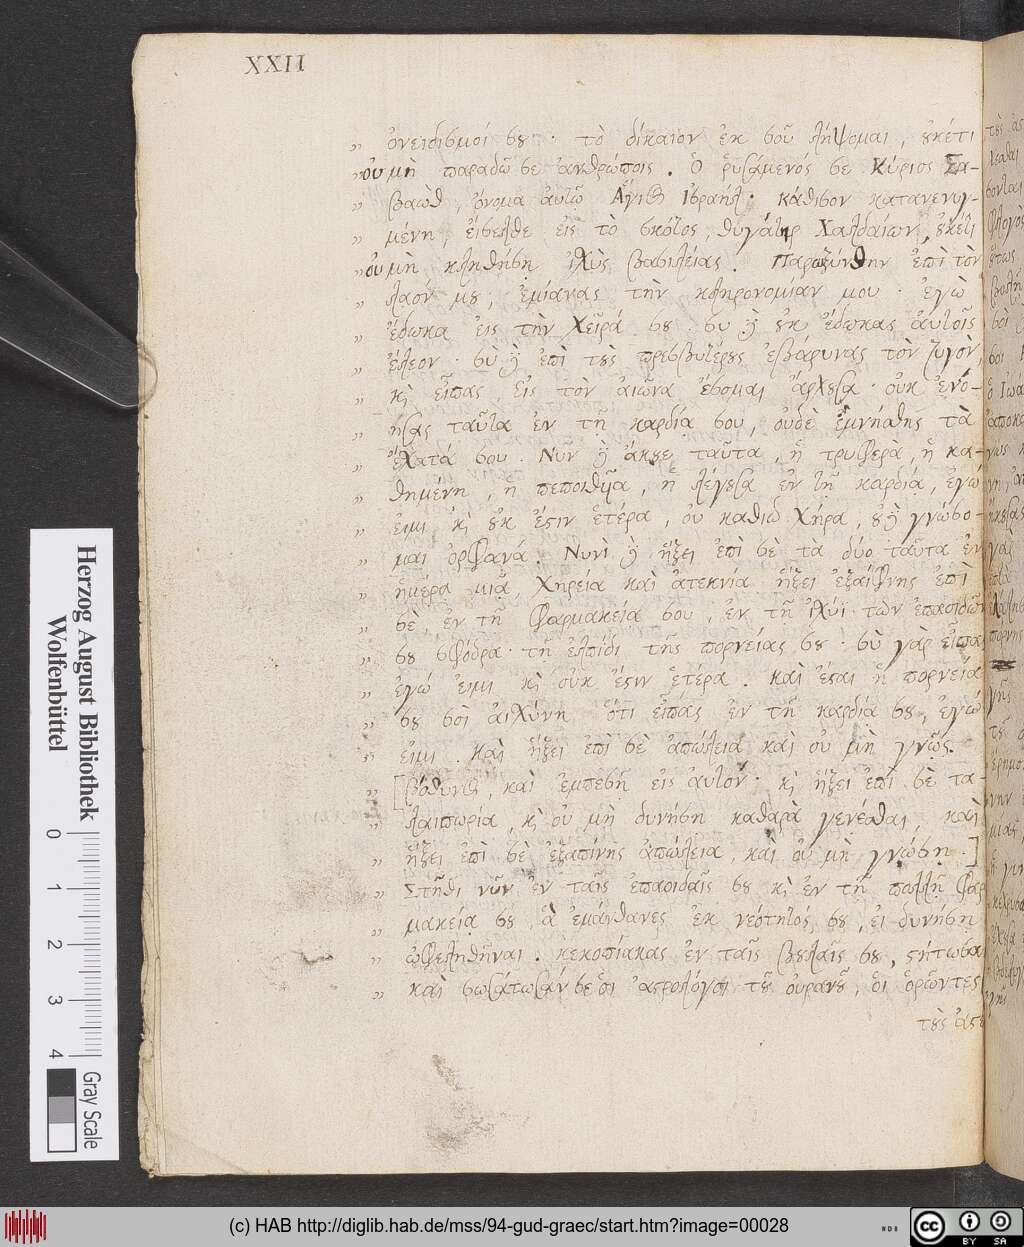 XXII
„ ὀνειδισμοί σου · τὸ δίκαιον ἐκ σοῦ λήψομαι, οὐκέτι
„ οὐ μὴ παραδῶ σε ἀνθρώποις . Ὁ ῥυσάμενός σε Κύριος Σα-
„ βαὼθ, ὄνομα αὐτῶ Ἅγιος Ἰσραήλ · κάθισον κατανενυγ-
„ μένη, εἴσελθε εἰς τὸ σκότος, θυγάτηρ Χαλδαίων, οὐκέτι
„ οὐ μὴ κληθήσῃ ἰσχὺς βασιλείας . Παρωξύνθην ἐπὶ τὸν
„ λαόν μου, ἐμίανας τὴν κληρονομίαν μου · ἐγὼ
„ ἔδωκα εἰς τὴν χεῖρά σου · συ δὲ οὐκ ἔδωκας αὐτοῖς
„ ἔλεον · σὺ δὲ ἐπὶ τοὺς πρεσβυτέρους ἐβάρυνας τὸν ζυγὸν,
„ καὶ εἶπας, εἰς τὸν αἰῶνα ἔσομαι ἄρχουσα · οὐκ ἐνό-
„ ησας ταῦτα ἐν τῇ καρδίᾳ σου, οὐδὲ ἐμνήσθης τὰ
„ ἔσχατά σου . Νῦν δὲ ἄκουε ταῦτα, ἡ τρυφερὰ, ἡ κα-
„ θημένη, ἡ πεποιθυῖα, ἡ λέγουσα ἐν τῇ καρδίᾳ, ἐγώ
„ εἰμι καὶ οὐκ ἔστιν ἑτέρα, οὐ καθιῶ χήρα, οὐδὲ γνώσο-
„ μαι ὀρφανά . Νυνὶ δὲ ἥξει ἐπὶ σὲ τὰ δύο ταῦτα ἐν
„ ἡμέρᾳ μιᾷ, χηρεία καὶ ἀτεκνία ἥξει ἐξαίφνης ἐπὶ
„ σὲ, ἐν τῇ φαρμακείᾳ σου, ἐν τῇ ἰσχύϊ τῶν ἐπαοιδῶν
„ σου σφόδρα · τῇ ἐλπίδι τῆς πορνείας σου · σὺ γὰρ εἶπας
„ ἐγώ εἰμι καὶ οὐκ ἔστιν ἑτέρα . καὶ ἔσται ἡ πορνεία
„ σου σοὶ αἰσχύνη ὅτι εἶπας ἐν τῇ καρδίᾳ σου, ἐγώ
„ εἰμι . καὶ ἥξει ἐπὶ σὲ ἀπώλεια καὶ οὐ μὴ γνῷς
„ [βόθυνος, καὶ ἐμπεσῇ εἰς αὐτὸν · καὶ ἥξει ἐπὶ σὲ τα-
„ λαιπωρία, καὶ οὐ μὴ δυνήσῃ καθαρὰ γενέσθαι, καὶ
„ ἥξει ἐπὶ σὲ ἐξαπίνης ἀπώλεια, καὶ οὐ μὴ γνώσῃ .]
„ Στῆθι νῦν ἐν ταῖς ἐπαοιδαῖς σου καὶ ἐν τῇ πολλῇ φαρ
„ μακείᾳ σου, ἃ ἐμάνθανες ἐκ νεότητός σου, εἰ δυνήσῃ
„ ὠφεληθῆναι . κεκοπίακας ἐν ταῖς βουλαῖς σου, στήτωσαν
„ καὶ σωσάτωσάν σε οἱ ἀστρολόγοι τοῦ οὐρανοῦ, οἱ ὁρῶντες
τοὺς ἀστέ
Herzog August Bibliothek
Wolfenbüttel
0 1 2 3 4
Gray Scale
(c) HAB http://diglib.hab.de/mss/94-gud-graec/start.htm?image=00028
WDB
cc BY SA